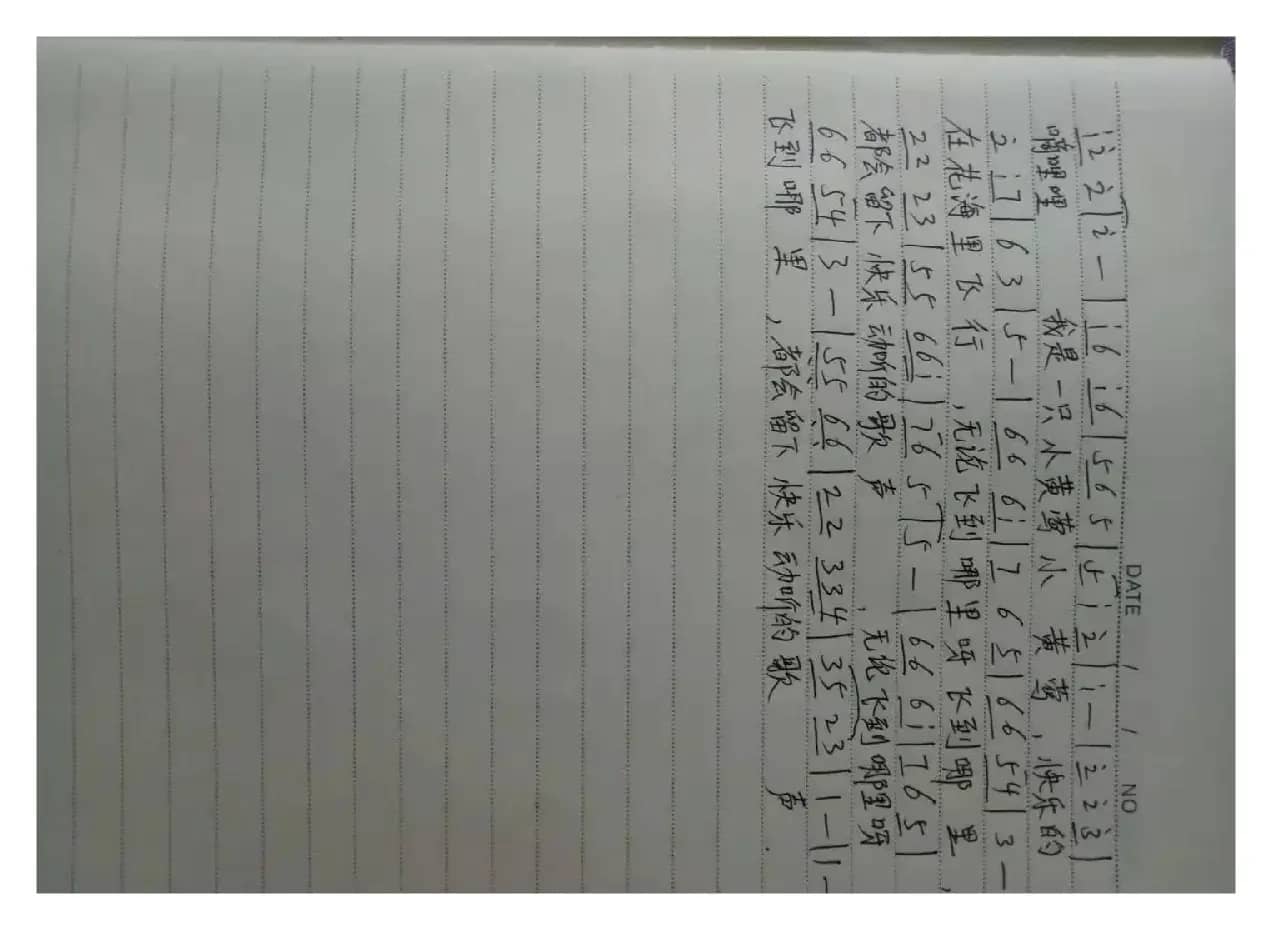 DATE / / NO
i̇ 2̇ 2̇ | 2̇ — | i̇ 6 i̇ 6 | 5 6 5 | 5 i̇ 2̇ | i̇ — | 2̇ 2̇ 3̇ |
嘀哩哩 我是一只小黄莺小黄莺,快乐的
2̇ i̇ 7 | 6 3 | 5 — | 6 6 6 i̇ | 7 6 5 | 6 6 5 4 | 3 —
在花海里飞行,无论飞到哪里呀飞到哪里,
2 2 2 3 | 5 5 6 6 i̇ | 7 6 5 | 5 — | 6 6 6 i̇ | 7 6 5 |
都会留下快乐动听的歌声,无论飞到哪里呀
6 6 5 4 | 3 — | 5 5 6 6 | 2 2 3 3 4 | 3 5 2 3 | 1 — | 1 —
飞到哪里,都会留下快乐动听的歌声.